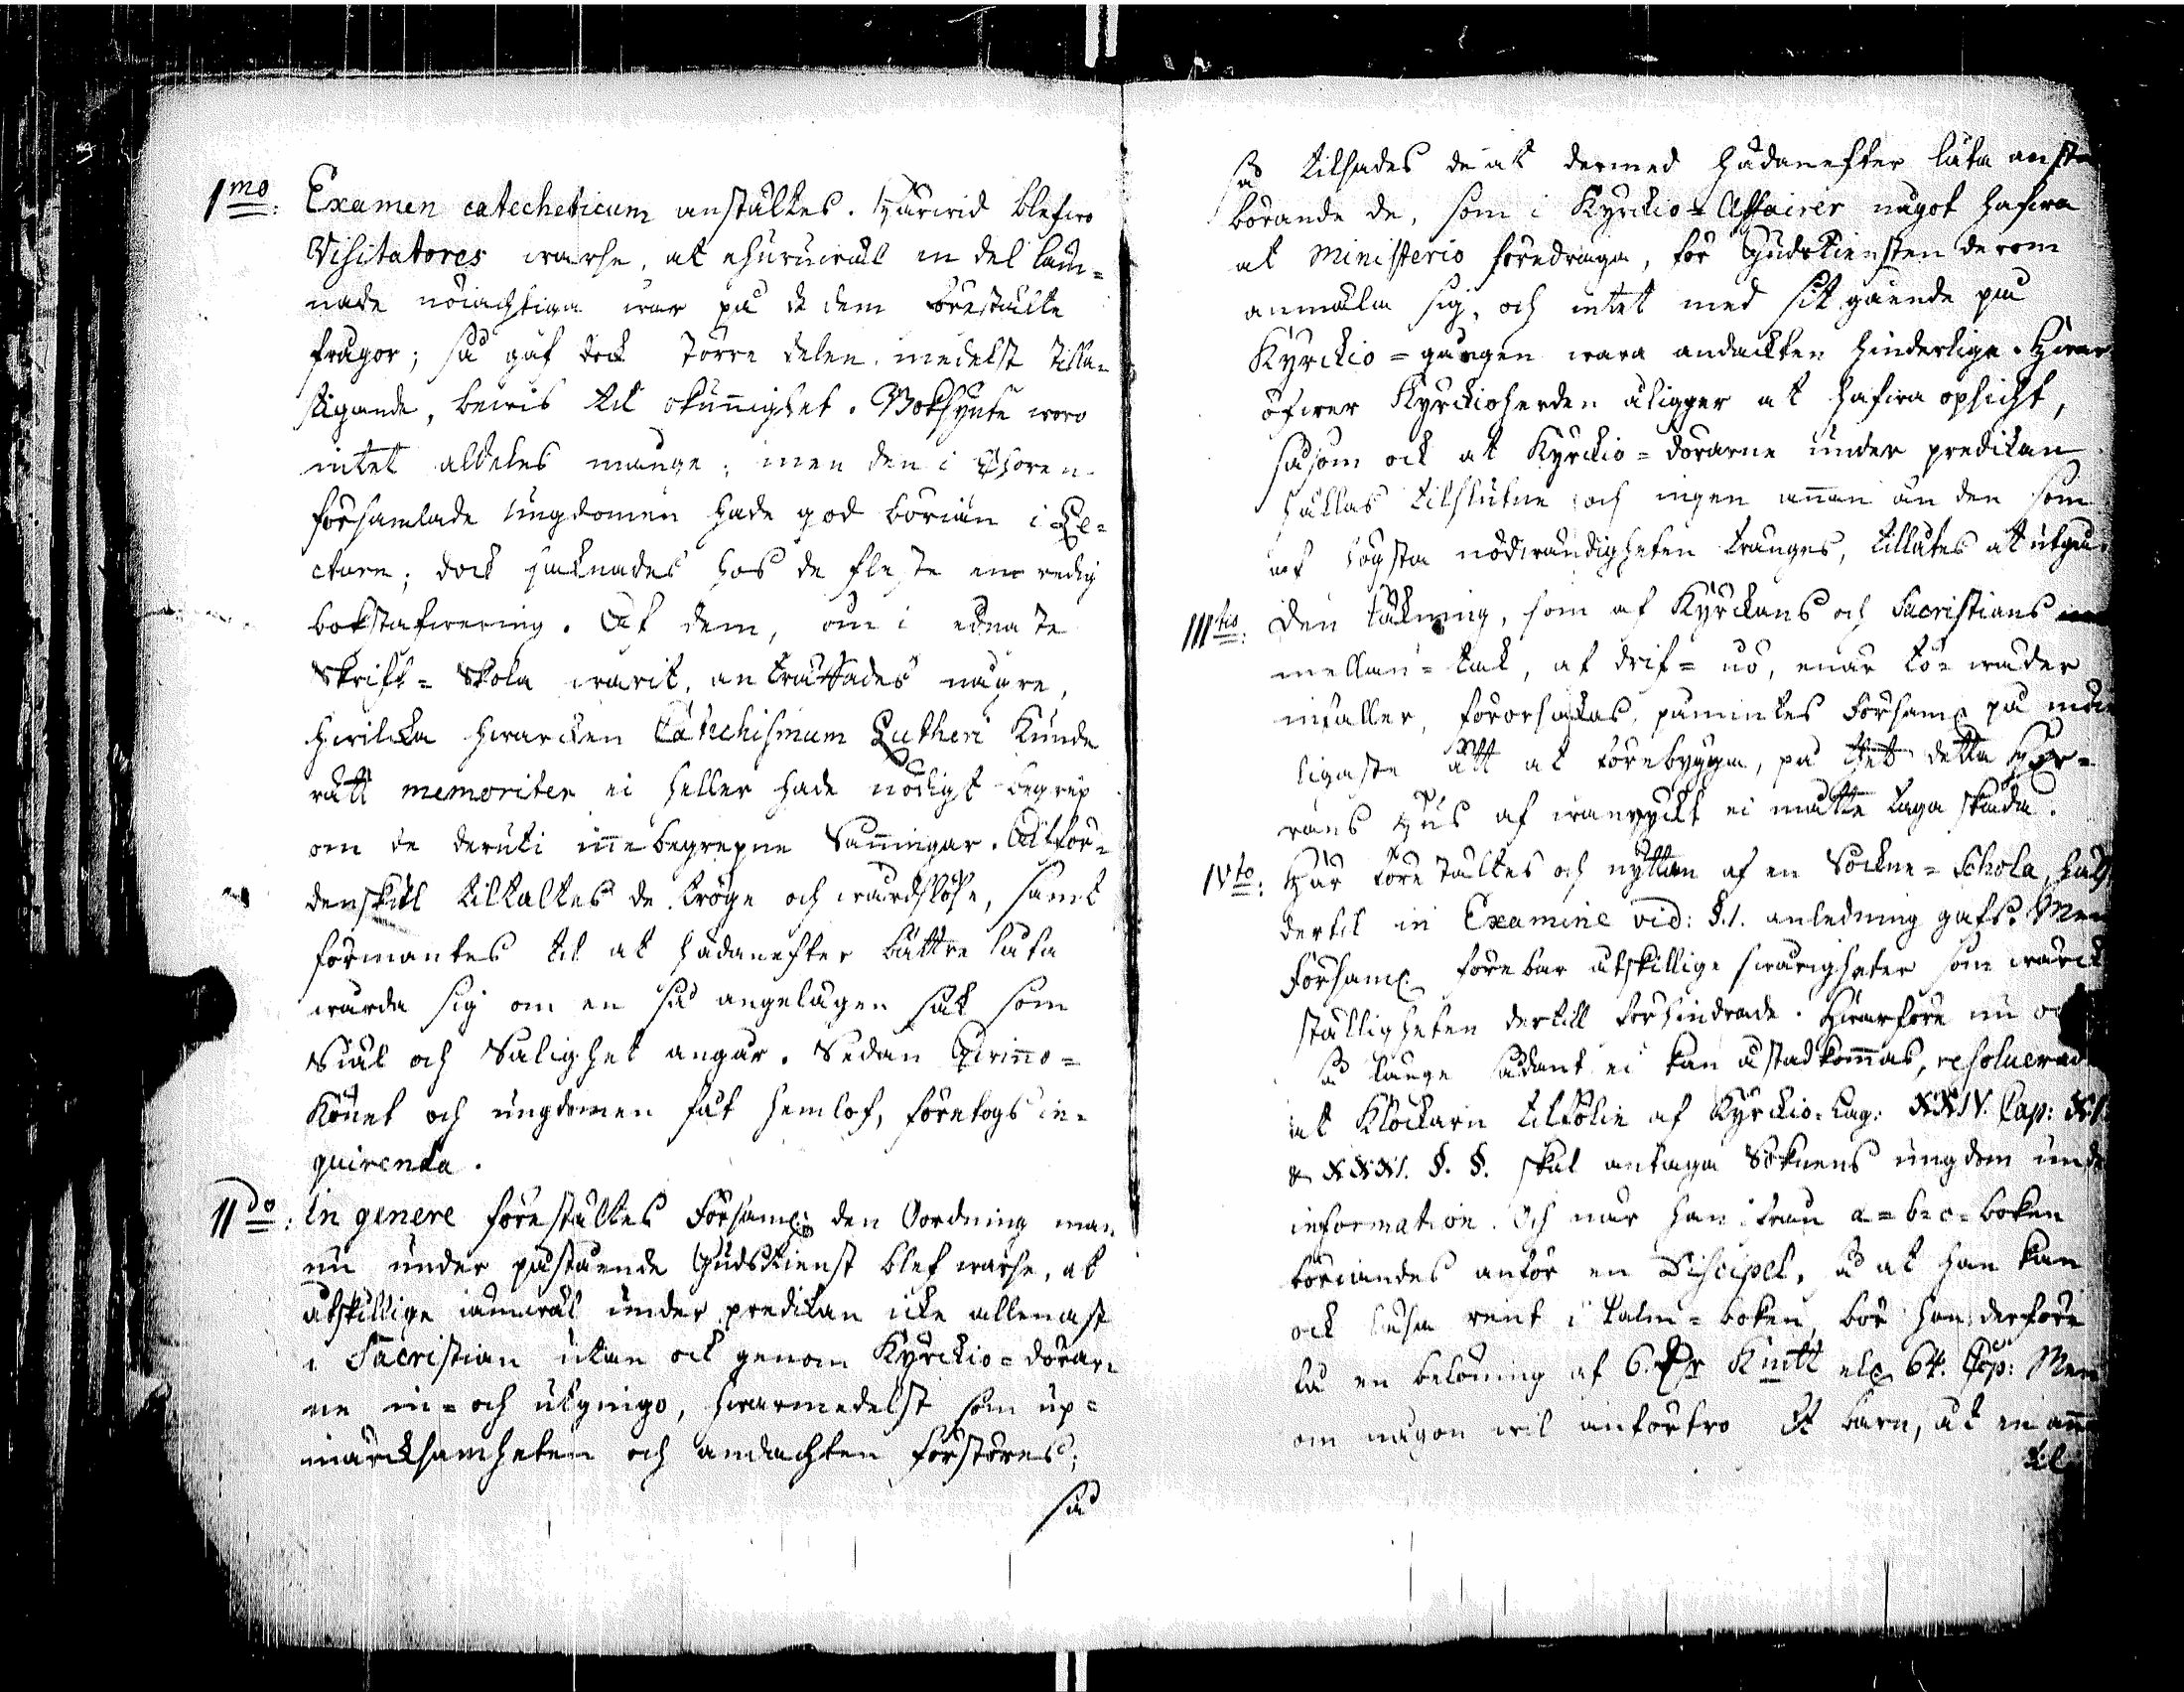 1mo: Examen catecheticum anstältes. Härwid blefwo
Visitatores warse, at ehuruwäl en del läm-
nade nöiachtiga swar på de dem förestälte
frågor; så gaf dock större delen, medelst stilla-
tigande, bewis til okunnighet. Boksynte woro
intet aldeles mange; men den i Choren
församlade ungdomen hade god börian i Le-
cturn; dock saknades hos de fleste en redig
bokstafwering. Af dem, som i
Skrift-Skola warit, anträffades någre,
hwilcka hwarcken Catechismum Lutheri kunde
rätt memoriter ei heller hade nödigt begrep
om de deruti innebegrepne Sanningar. Altför-
denskul tiltaltes de tröge och wårdslöse, samt
förmantes til at hädanefter bättre låta
wårda sig om en så angelägen sak som
Siäl och Salighet angår. Sedan Qwinno-
Könet och ungdomen fåt hemlof, företogs in-
quirenda.
IIdo: In genere förestältes Församl: den Oordning man
nu under påstående Gudstienst blef warse, at
åtskillige iämwäl under predikan icke allenast
i Sacristian utan ock genom Kyrckio-dörar-
ne in- och utgingo, hwarmedelst som up-
märcksamheten och andachten förstöres;
så
så tilsades de at dermed hädanefter låta anstå
börande de, som i Kyrckio-Affairer något hafwa
at Ministerio föredraga, för Gudstiensten derom
anmäla sig, och intet med sit gående på
Kyrckio-gången wara andackten hinderlige. Hwar
öfwer Kyrckioherden åligger at hafwa opsicht,
såsom ock at Kyrckio-dörarne under predikan
hållas tilslutne och ingen annan än den som
af högsta nödwändigheten tränges, tillåtes at utgå.
IIItio: Den läkning, som af Kyrckans och Sacristians
mellan-tak, af drif-snö, enär tö-wäder
infaller, förorsakas, påmintes Församl: på
ligaste sätt at förebygga, på thet detta Her-
rans Hus af wanryckt ei måtte taga skada.
IVto: Här förestältes och nyttan af en Sockne-Schola,
dertil in Examine vid: §.1. anledning gafs. Men
Församl: förebar åtskillige swårigheter som wärck
ställigheten dertill förhindrade. Hwarföre nu och
så länge sådant ei kan åstadkommas, resolverad
at Klockarn tilfölie af Kyrckio-Lag: XXIV. Cap: XI.
& XXXI. §.§. skal antaga Soknens ungdom und
information. Och när han ifrån a-b-c-boken
böriandes anför en Discipel, så at han kan
ock läsa rent i Psalm-boken, bör han derföre
få en belöning af 6. Kmtt el: 64. Cop: Men
om någon wil anförtro sit barn, åt en ann
til